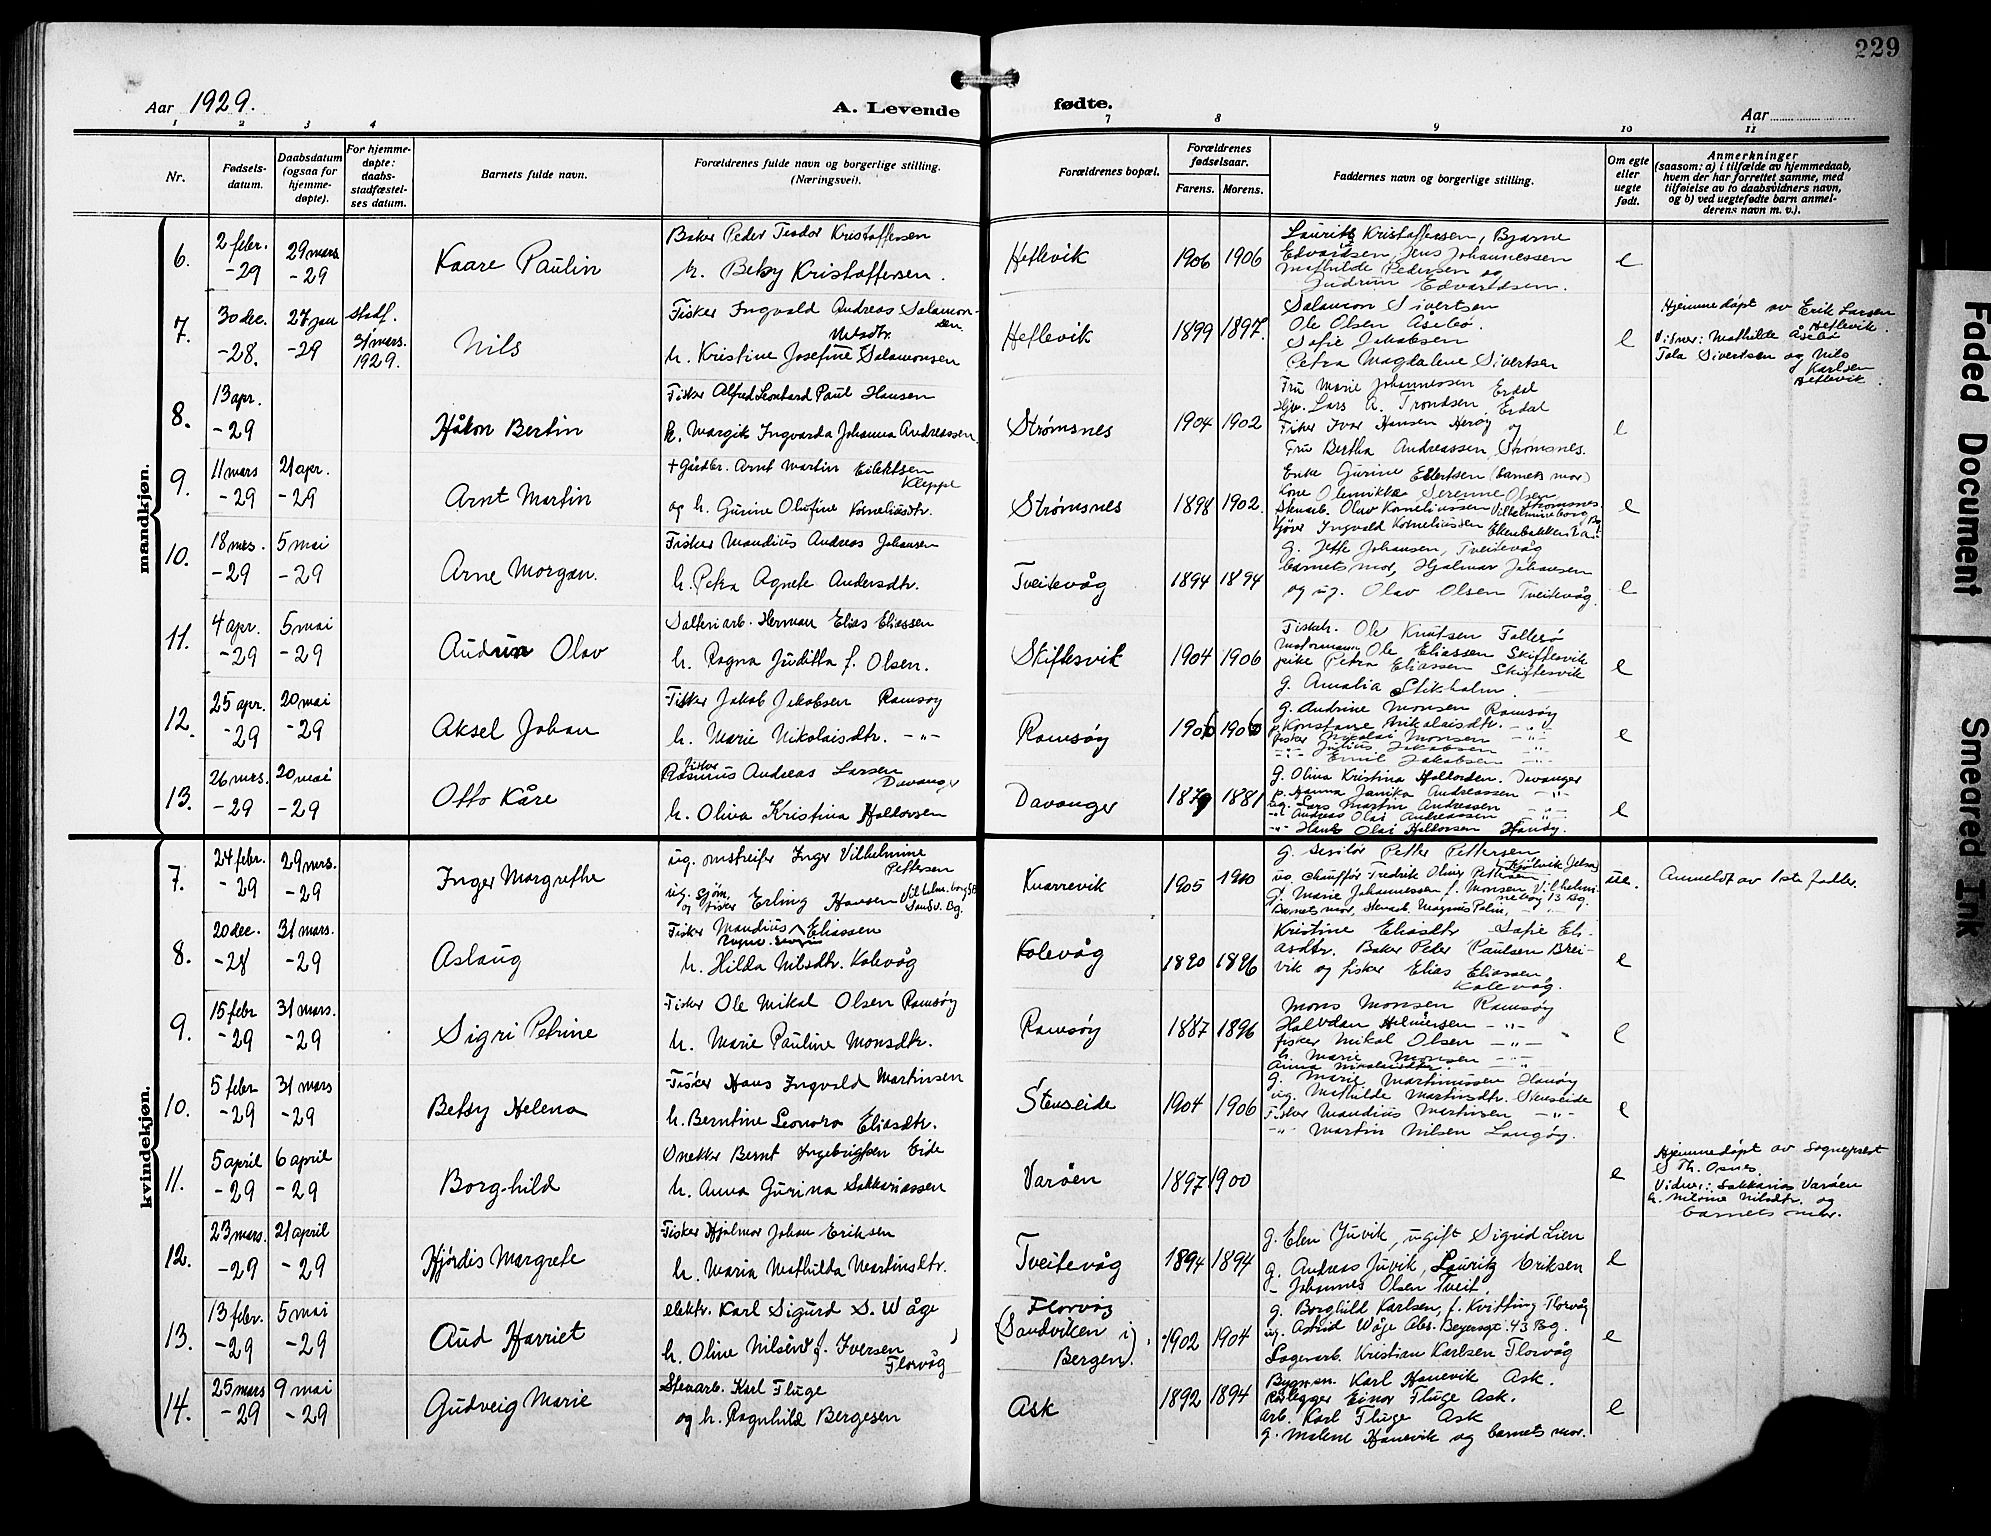 229
Aar 1929.
A. Levende
fødte.
Aar
1 2 3 4 7 8 9 10 11
Nr.
Fødsels-
datum.
Daabsdatum
(ogsaa for
hjemme-
døpte).
For hjemme-
døpte:
daabs-
stadfæstel-
ses datum.
Barnets fulde navn.
Forældrenes fulde navn og borgerlige stilling.
(Næringsvei).
Forældrenes bopæl.
Forældrenes
fødselsaar.
Farens. Morens.
Faddernes navn og borgerlige stilling.
Om egte
eller
uegte
født.
Anmerkninger
(saasom: a) i tilfælde av hjemmedaab,
hvem der har forrettet samme, med
tilføielse av to daabsvidners navn,
og b) ved uegtefødte barn anmel-
derens navn m. v.).
mandkjøn.
6.
2 febr.
-29
29 mars
-29
Kaare Paulin
Baker Peder Teodor Kristoffersen
h. Betsy Kristoffersen.
Heflevik
1906 1906
Laurits Kristoffersen, Bjarne
Edvardsen, Jens Johannessen
Mathilde Pedersen og
Gudrun Edvardsen.
e
7.
30 dec.
-28.
27 jan
-29
stadf.
31 mars.
1929.
Nils
Fisker Ingvald Andreas Salamon-
sen
h. Kristine Josefine Salamonsen
Heflevik
1899 1897.
Salamon Sivertsen
Ole Olsen Åsebø
Sofie Jakobsen
Petra Magdalene Sivertsen
e
Hjemmedøpt av Erik Larsen
Heflevik.
Vidner: Mathilde Åsebø
Tala Sivertsen og Nils
Karlsen
Heflevik.
8.
13 apr.
-29
Håkon Bertin
Fisker Alfred Leonhard Paul Hansen
h. Margit Ingvarda Johanna Andreassen.
Strømsnes
1904 1902
Fru Marie Johannessen Erdal
Lars A. Trondsen, Erdal
Fisker Ivar Hansen Herøy og
Fru Bertha Andreassen, Strømsnes.
e
9.
11 mars
-29
21 apr.
-29
Arnt Martin
+ Gårdbr. Arnt Martin Eilertsen
Kleppe
og h. Gurine Olufine Korneliusdtr.
Strømsnes
1898 1902.
Enke Gurine Eilertsen (barnets mor)
Kone Olevikka Serenne Olsen
Strømsnes
Stenarb. Olav Korneliussen Vilhelmineborg
Ingvald Korneliussen
e
10.
18 mrs.
-29
5 mai
-29
Arne Morgan.
Fisker Mandius Andreas Johansen
h. Petra Agnete Andersdtr.
Tveitevåg
1894 1894
g. Jette Johansen, Tveitevåg
barnets mor, Hjalmar Johansen
og ug. Olav Olsen Tveitevåg.
e
11.
4 apr.
-29
5 mai
-29
Audun Olav
Salteriarb. Herman Elias Eliassen
h. Ragna Juditta f. Olsen.
Skiftesvik
1904 1906
Fiskeh. Ole Knutsen Follesø
Ole Eliassen Skiftesvik
pike Petra Eliassen Skiftesvik
g. Amalia Stikholm.
e
12.
25 apr.
-29
20 mai
-29
Aksel Johan
Fisker Jakob Jakobsen Ramsøy
h. Marie Nikolaisdtr. -"-
Ramsøy
1906 1906
g. Andrine Monsen Ramsøy
p. Konstane Nikolaisdtr. -"-
fisker Nikolai Monsen -"-
-"- Julius Jakobsen -"-
-"- Emil Jakobsen -"-
e
13.
26 mrs.
-29
20 mai
-29
Otto Kåre
fisker
Rasmus Andreas Larsen
Davanger
h. Oliva Kristina Haldorsen
Davanger
1879 1881
g. Oliva Kristina Haldorsen. Davanger
p. Hanna Janika Andreassen -"-
ug. Lars Martin Andreassen -"-
-"- Andreas Olai Andreassen -"-
-"- Hans Olai Haldorsen Hanøy.
e
kvindekjøn.
7.
24 febr.
-29
29 mrs.
-29
Inger Margrethe
ug. omstreifer Inger Vilhelmine
Pettersen
ug. sjøm.
og fisker Erling Hansen Vilhelm.borg
Sandv. Bg.
Kvarrevik
1905 1910
g. Petter Pettersen
ug chauffør Fredrik Oliver Pettersen
g. Marie Johannessen f. Monsen, Vilhelmi-
neborg 13 Bg.
Barnets mor, Stenarb. Magnus Palm,
ue.
Anmeldt av 1ste fadder.
8.
20 dec.
-28
31 mars.
-29
Aslaug
Fisker Mandius Eliassen
h. Hilda Nilsdtr. Kolevåg
Kolevåg
1890 1896
Kristine Eliasdtr Sofie Eli-
asdtr. Baker Peder Paulsen Brei-
vik og fisker Elias Eliassen
Kolevåg.
e
9.
15 febr
-29
31 mars.
-29
Sigri Petrine
Fisker Ole Mikal Olsen Ramsøy
h. Marie Pauline Monsdtr.
Ramsøy
1887 1896
Mons Monsen Ramsøy
Halvdan Helmersen -"-
fisker Mikal Olsen -"-
h. Marie Monsen -"-
Anna Nikolaisdtr.
e
10.
5 febr
-29
31 mars
-29
Betsy Helena
Fisker Hans Ingvald Martinsen
h. Berntine Leonora Eliasdtr.
Stenseide
1904 1906
g. Marie Martinussen Hanøy
ug. Mathilde Martinsdtr. Stenseide
Fisker Mandius Martinsen -"-
-"- Martin Nilsen Langøy.
e
11.
5 april
-29
6 april
-29
Borghild
Snekker Bernt Ingebrigtsen Eide
h. Anna Gurina Sakkariassen
Varøen
1897 1900
e
Hjemmedøpt av Sogneprest
S Th. Osnes.
Vidner: Sakkarias Varøen
h. Nilsdtr. og
barnets mor.
12.
23 mars.
-29
21 april
-29
Hjørdis Margrete
Fisker Hjalmar Johan Eriksen
h. Maria Mathilda Martinsdtr.
Tveitevåg
1894 1894
g. Elen Juvik, ugift Sigrid Lien
g. Andreas Juvik, Lauritz Eriksen
- Johannes Olsen Tveit.
e
13.
13 febr.
-29
5 mai
-29
Aud Harriet
elektr. Karl Sigurd S. Wåge
h. Oline Nilsine f. Iversen
Florvåg
Florvåg
(Sandviken i
Bergen).
1902 1904
g. Borghild Karlsen, f. Kvitting Florvåg
ug. Astrid Wåge Abs. Beyersgt. 43 Bg.
Lagerarb. Kristian Karlsen Florvåg
e
14.
25 mars
-29
9 mai
-29
Gudveig Marie
Stenarb. Karl Fluge
og h. Ragnhild Bergesen
Ask
1892 1894
Bygm. Karl Hanevik Ask.
Rørlegger Einar Fluge Ask.
arb. Karl Fluge Ask
g. Malene Hanevik og barnets mor.
e
Faded Document
Smeared Ink